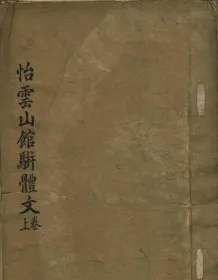 怡雲山館駢體文卷上